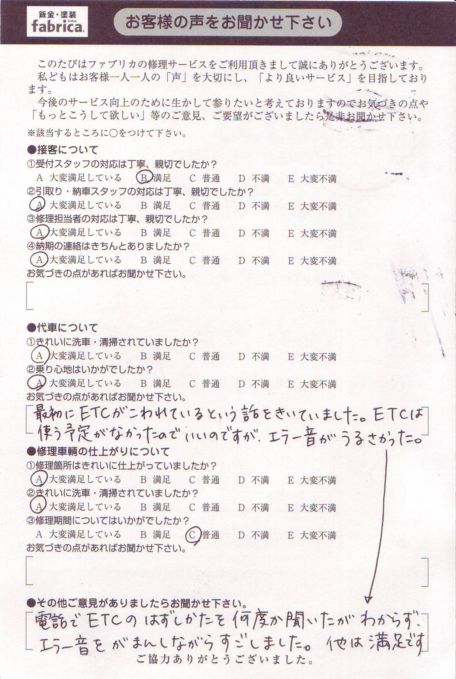 鈑金・塗装
fabrica.
お客様の声をお聞かせ下さい
このたびはファブリカの修理サービスをご利用頂きまして誠にありがとうございます。
私どもはお客様一人一人の「声」を大切にし、「より良いサービス」を目指しており
ます。
今後のサービス向上のために生かして参りたいと考えておりますのでお気づきの点や
「もっとこうして欲しい」等のご意見、ご要望がございましたら是非お聞かせ下さい。
※該当するところに○をつけて下さい。
●接客について
①受付スタッフの対応は丁寧、親切でしたか?
A 大変満足している B 満足 C 普通 D 不満 E 大変不満
②引取り・納車スタッフの対応は丁寧、親切でしたか?
A 大変満足している B 満足 C 普通 D 不満 E 大変不満
③修理担当者の対応は丁寧、親切でしたか?
A 大変満足している B 満足 C 普通 D 不満 E 大変不満
④納期の連絡はきちんとありましたか?
A 大変満足している B 満足 C 普通 D 不満 E 大変不満
お気づきの点があればお聞かせ下さい。
●代車について
①きれいに洗車・清掃されていましたか?
A 大変満足している B 満足 C 普通 D 不満 E 大変不満
②乗り心地はいかがでしたか?
A 大変満足している B 満足 C 普通 D 不満 E 大変不満
お気づきの点があればお聞かせ下さい。
最初にETCがこわれているという話をきいていました。ETCは
使う予定がなかったのでいいのですが、エラー音がうるさかった。
●修理車輌の仕上がりについて
①修理箇所はきれいに仕上がっていましたか?
A 大変満足している B 満足 C 普通 D 不満 E 大変不満
②きれいに洗車・清掃されていましたか?
A 大変満足している B 満足 C 普通 D 不満 E 大変不満
③修理期間についてはいかがでしたか?
A 大変満足している B 満足 C 普通 D 不満 E 大変不満
お気づきの点があればお聞かせ下さい。
●その他ご意見がありましたらお聞かせ下さい。
電話でETCのはずしかたを何度か聞いたがわからず、
エラー音をがまんしながらすごしました。他は満足です
ご協力ありがとうございました。